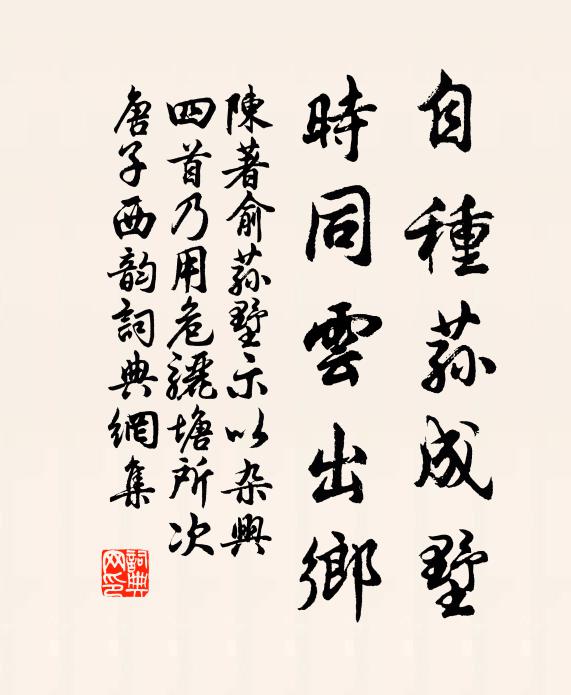 自種菰成墅
時同雲出鄉
陳著俞菰墅示以杂興
四首乃用危驪塘所次
唐子西韵詞典網集
詞典网印